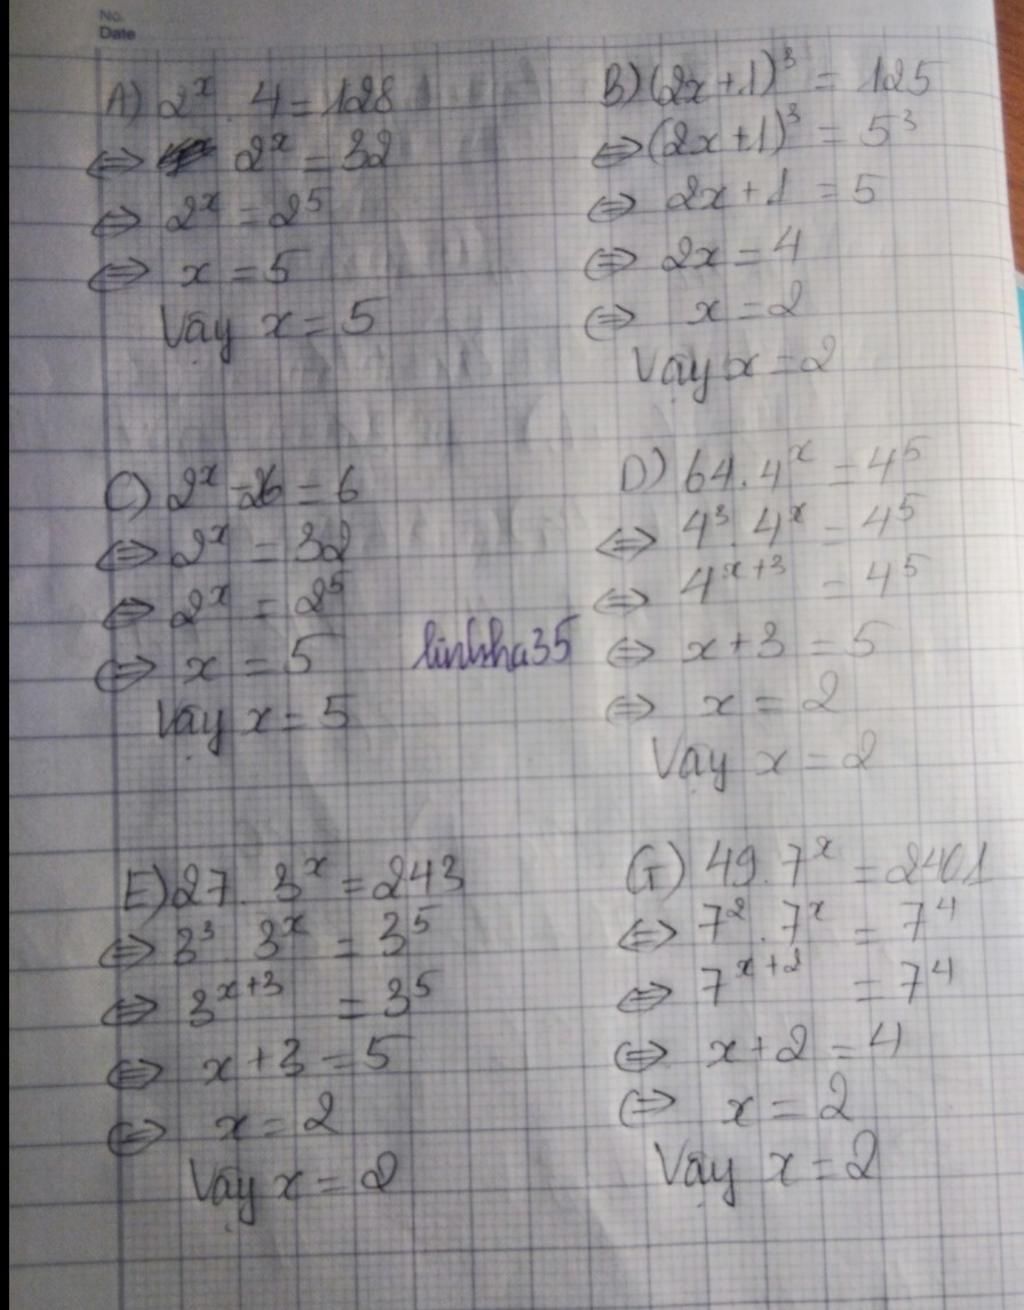 No.
Date
A) 2ˣ . 4 = 128
⇔ 2ˣ = 32
⇔ 2ˣ = 2⁵
⇔ x = 5
Vậy x = 5
B) (2x + 1)³ = 125
⇔ (2x + 1)³ = 5³
⇔ 2x + 1 = 5
⇔ 2x = 4
⇔ x = 2
Vậy x = 2
C) 2ˣ - 26 = 6
⇔ 2ˣ = 32
⇔ 2ˣ = 2⁵
⇔ x = 5
Vậy x = 5
linhsha35
D) 64 . 4ˣ = 4⁵
⇔ 4³ . 4ˣ = 4⁵
⇔ 4ˣ⁺³ = 4⁵
⇔ x + 3 = 5
⇔ x = 2
Vậy x = 2
E) 27 . 3ˣ = 243
⇔ 3³ . 3ˣ = 3⁵
⇔ 3ˣ⁺³ = 3⁵
⇔ x + 3 = 5
⇔ x = 2
Vậy x = 2
G) 49 . 7ˣ = 2401
⇔ 7² . 7ˣ = 7⁴
⇔ 7ˣ⁺² = 7⁴
⇔ x + 2 = 4
⇔ x = 2
Vậy x = 2